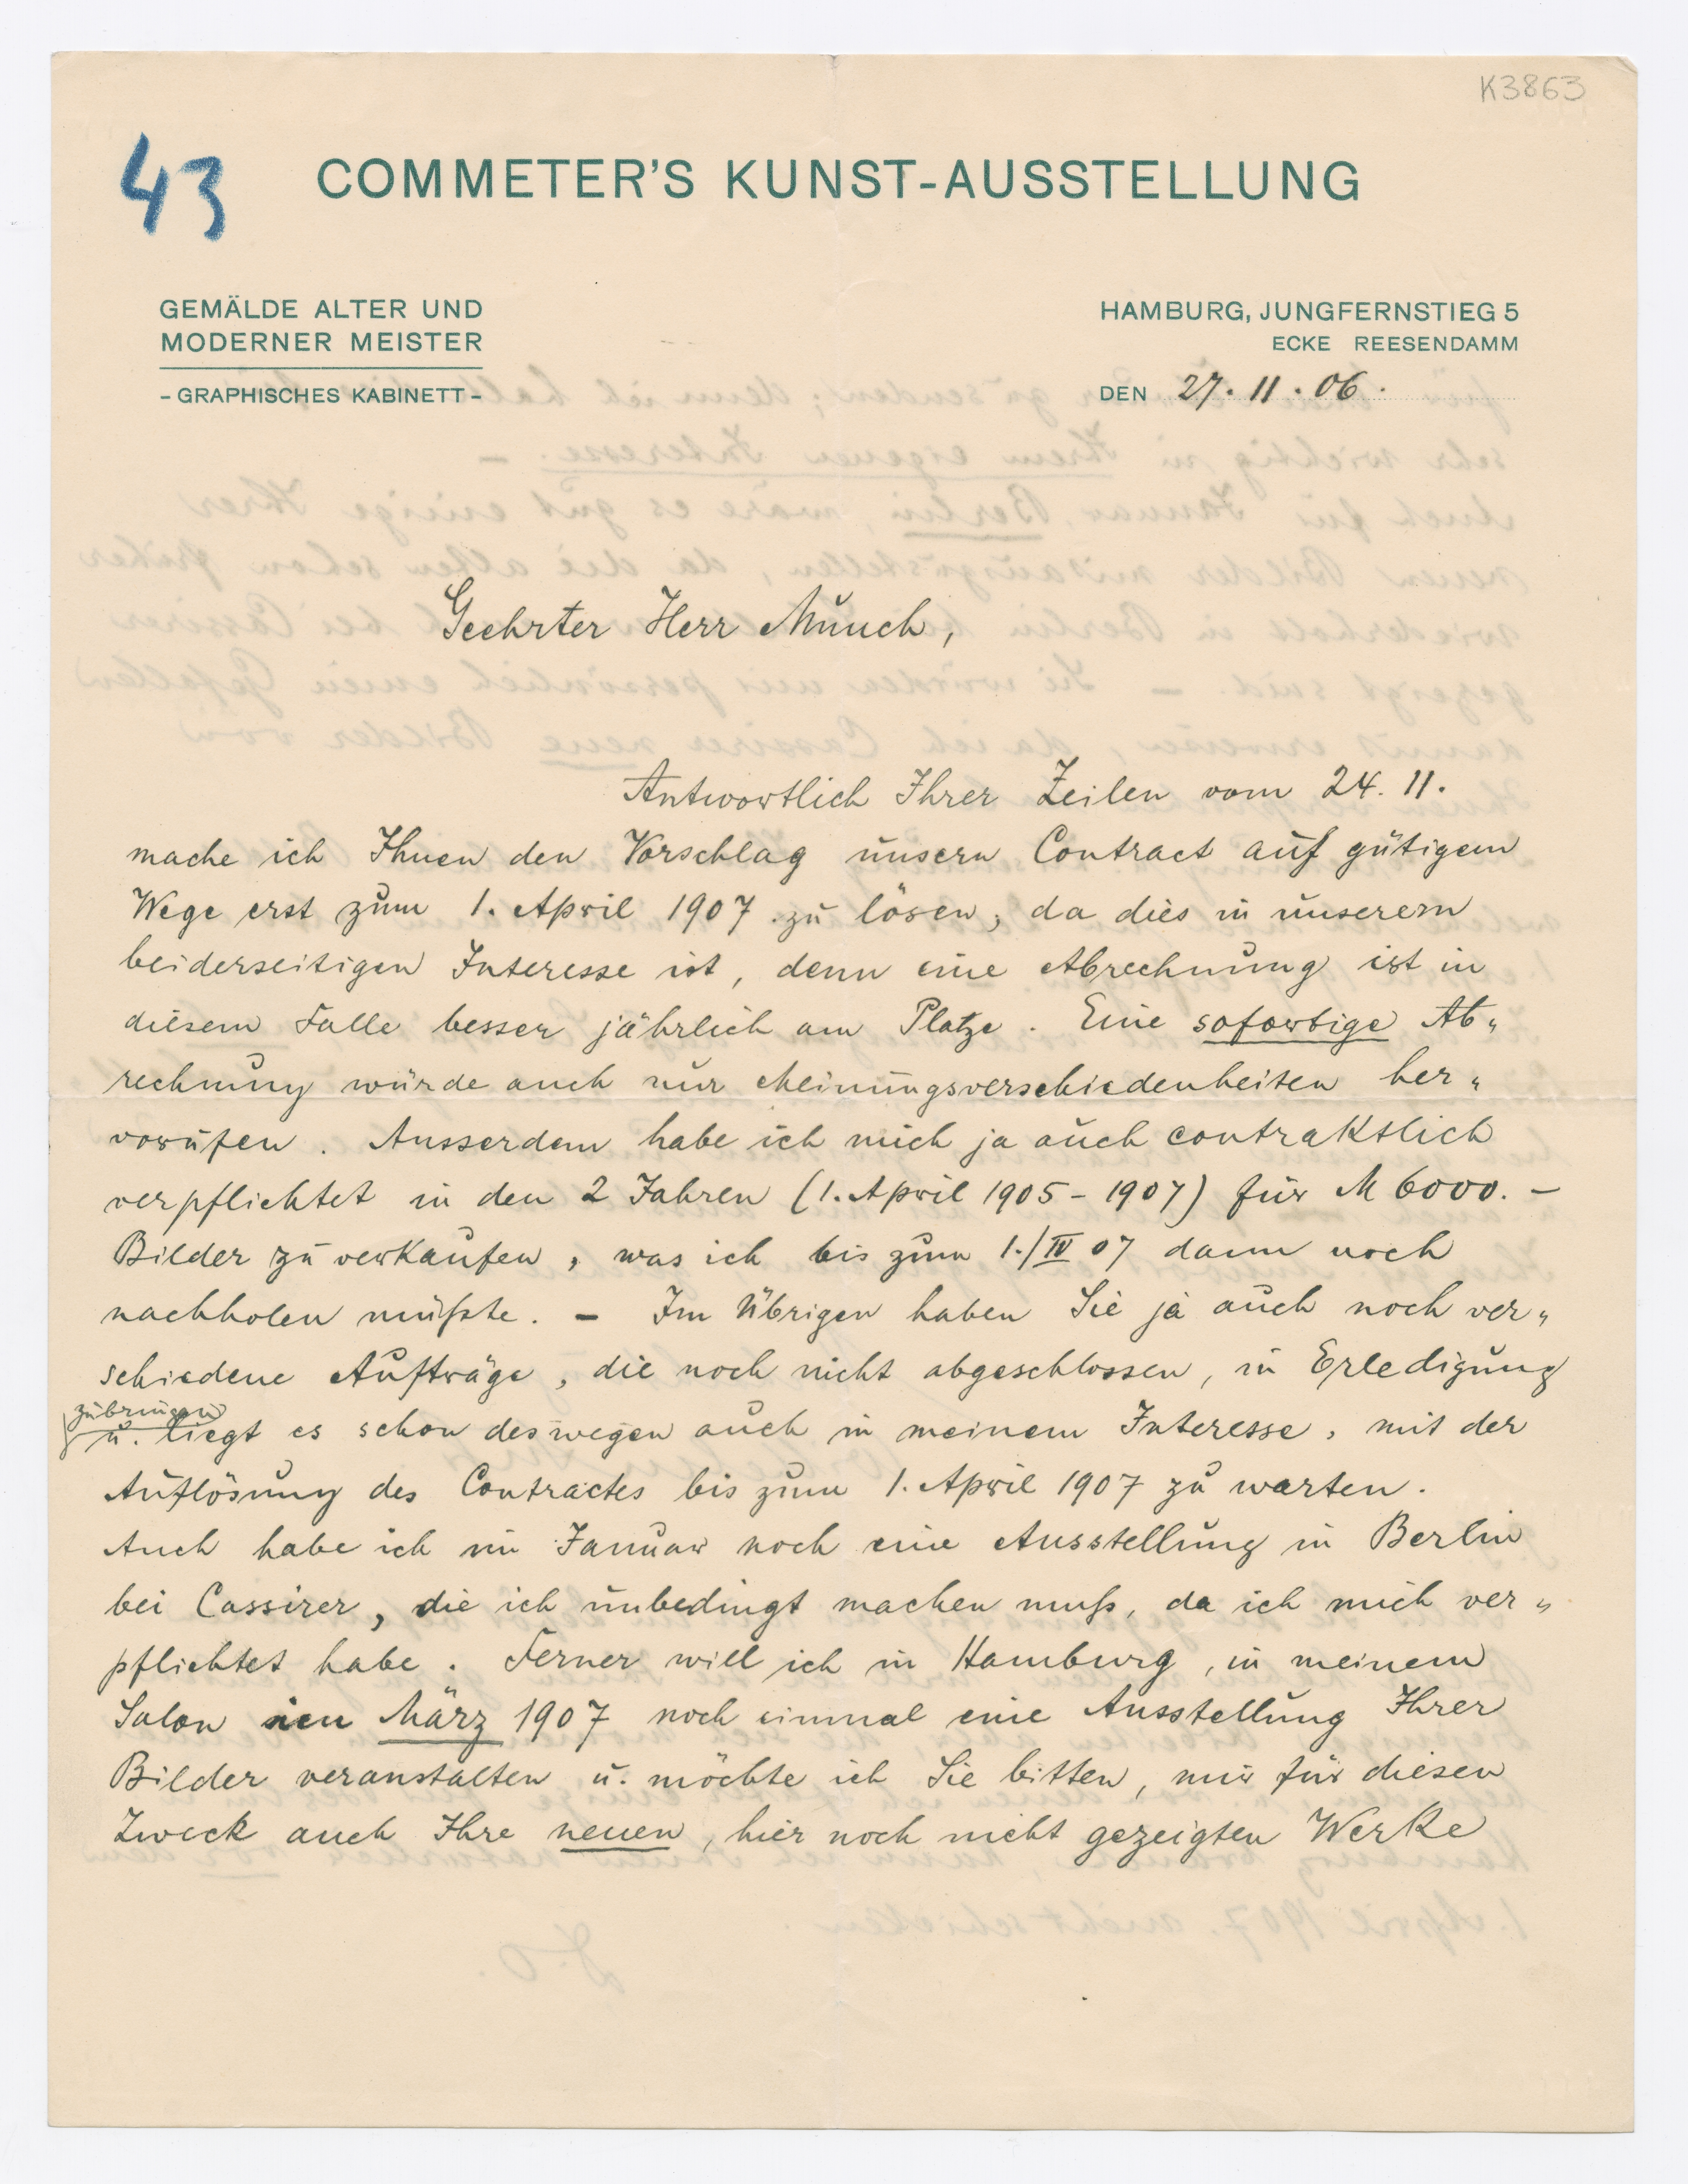 K3863
43
COMMETER'S KUNST-AUSSTELLUNG
GEMÄLDE ALTER UND
MODERNER MEISTER
- GRAPHISCHES KABINETT -
HAMBURG, JUNGFERNSTIEG 5
ECKE REESENDAMM
DEN 27. 11. 06.
Geehrter Herr Munch,
Antwortlich Ihrer Zeilen vom 24. 11.
mache ich Ihnen den Vorschlag unsern Contract auf gütigem
Wege erst zum 1. April 1907 zu lösen, da dies in unserem
beiderseitigen Interesse ist, denn eine Abrechnung ist in
diesem Falle besser jährlich am Platze. Eine sofortige Ab„
rechnung würde auch nur Meinungsverschiedenheiten her„
vorufen. Ausserdem habe ich mich ja auch contraktlich
verpflichtet in den 2 Jahren (1. April 1905 - 1907) für M 6000. –
Bilder zu verkaufen, was ich bis zum 1./IV 07 dann noch
nachholen müßte. – Im Übrigen haben Sie ja auch noch ver„
schiedene Aufträge, die noch nicht abgeschlossen, in Erledigung
zu bringen
u. liegt es schon deswegen auch in meinem Interesse, mit der
Auflösung des Contractes bis zum 1. April 1907 zu warten.
Auch habe ich im Januar noch eine Ausstellung in Berlin
bei Cassirer, die ich unbedingt machen muß, da ich mich ver„
pflichtet habe. Ferner will ich in Hamburg, in meinem
Salon im März 1907 noch einmal eine Ausstellung Ihrer
Bilder veranstalten u. möchte ich Sie bitten, mir für diesen
Zweck auch Ihre neuen, hier noch nicht gezeigten Werke